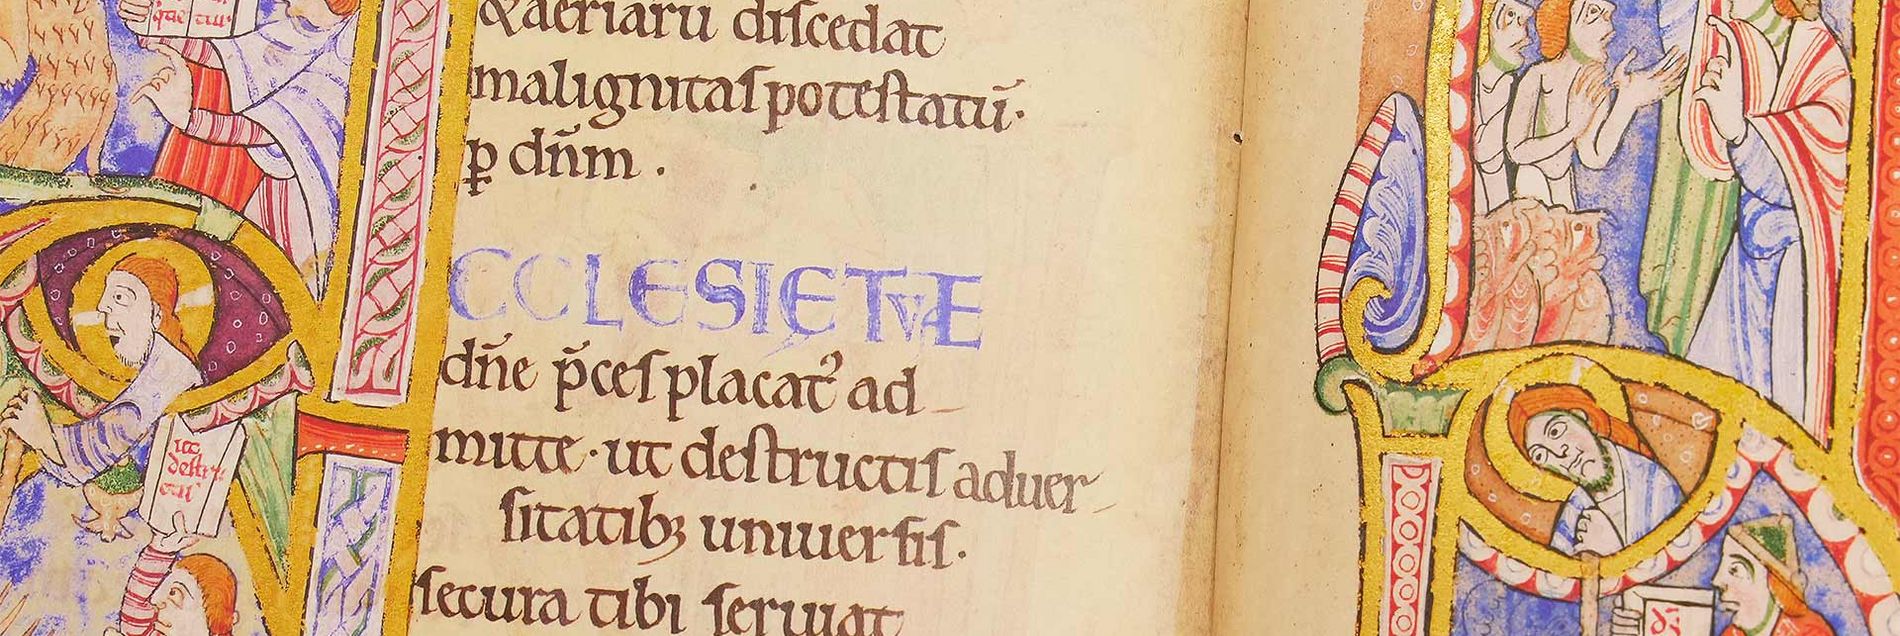 q̄ue tuı̄
&aeriarū discedat
malignitas potestatū·
ꝑ dn̄m ·
CCLESIĘ TVAE
dn̄e p̄ces placatꝰ ad
mitte · ut destructis aduer
sitatibꝫ uniuersis ·
secura tibi seruiat
ut
destru
ctis